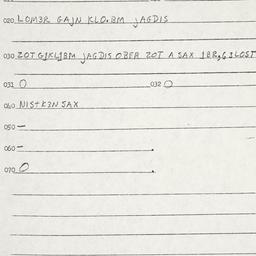 020 LOM3R GAJN KLO.BM JAGDIS
030 ZOT GJKLJBM JAGDIS OBFA ZOT A SAX JBR,GILOST
031 O 032 O
040 NIS+K3N SAX
050 –
060 – .
070 O .